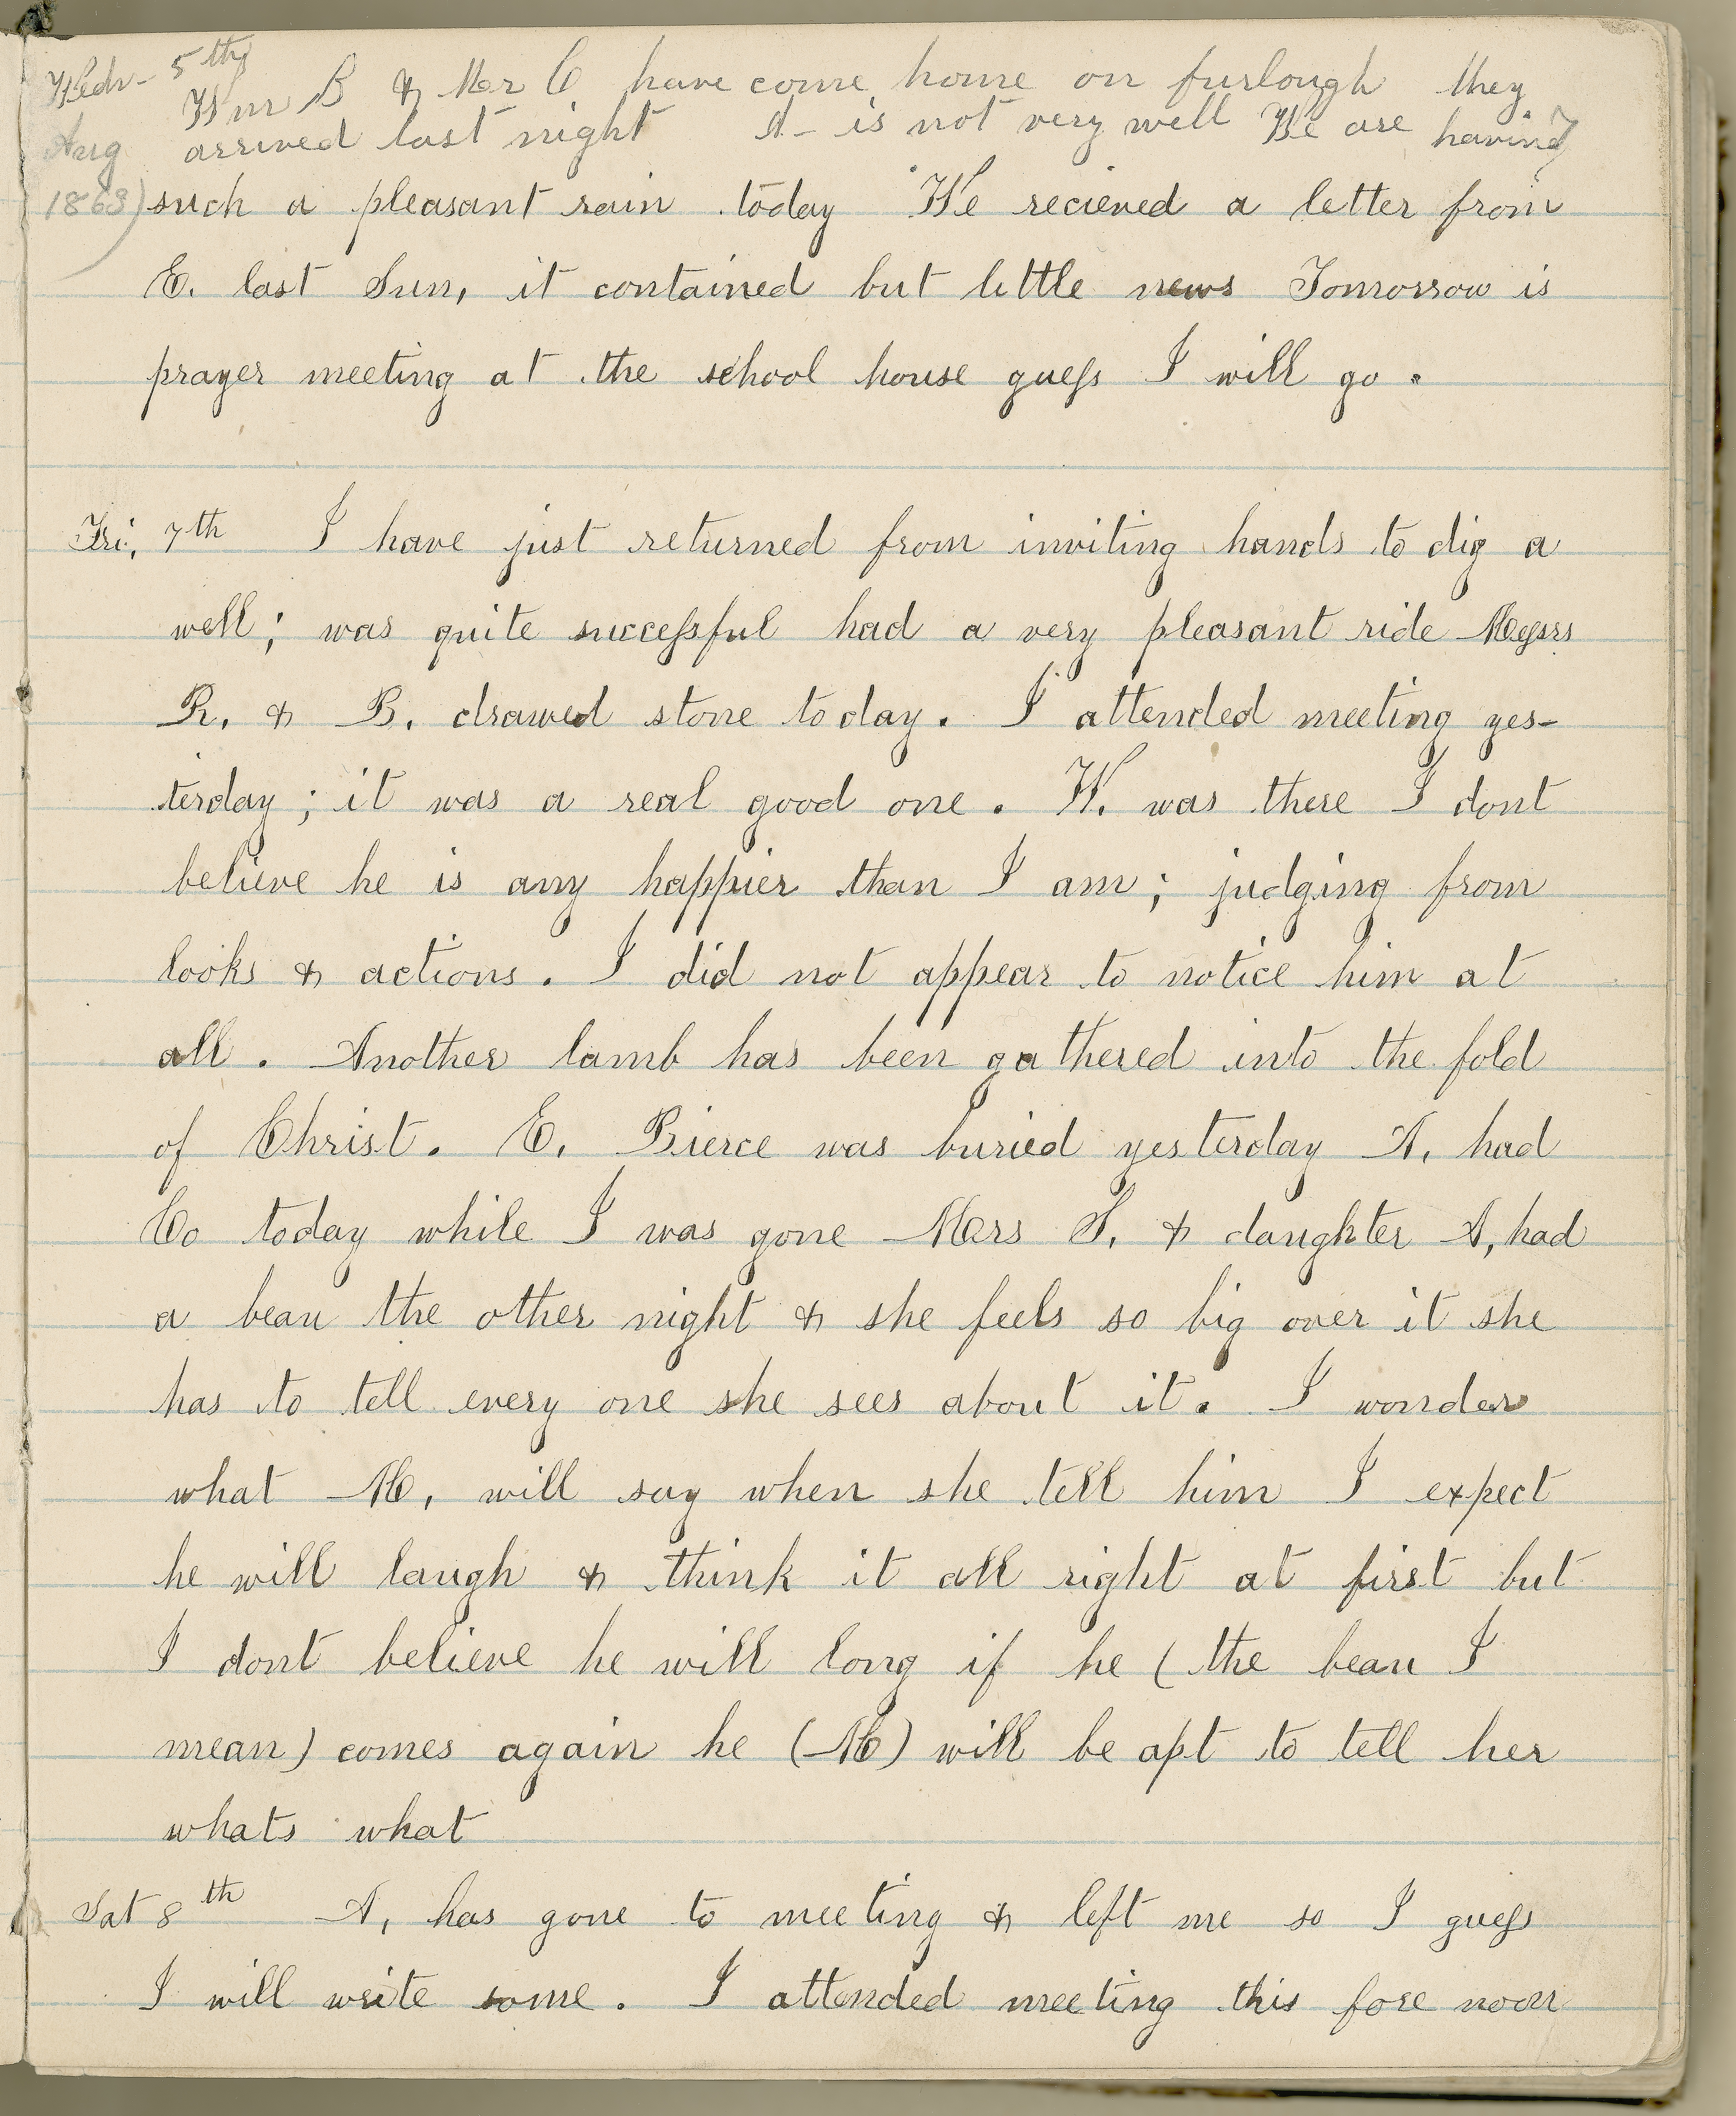 Wedn- 5th
Wm B & Mr C have come home on furlough they
Aug arrived last night A- is not very well We are having
1863) such a pleasant rain today We recieved a letter from
E. last Sun, it contained but little news Tomorrow is
prayer meeting at the school house guess I will go.
Fri, 7th I have just returned from inviting hands to dig a
well; was quite successful had a very pleasant ride Messrs
R. & B. drawed stone today. I attended meeting yes-
terday; it was a real good one. W. was there I dont
believe he is any happier than I am; judging from
looks & actions. I did not appear to notice him at
all. Another lamb has been gathered into the fold
of Christ. E. Pierce was buried yesterday A. had
Co today while I was gone Mrs S. & daughter A, had
a beau the other night & she feels so big over it she
has to tell every one she sees about it. I wonder
what M, will say when she tell him I expect
he will laugh & think it all right at first but
I dont believe he will long if he (the beau I
mean) comes again he (M) will be apt to tell her
whats what
Sat 8th A, has gone to meeting & left me so I guess
I will write some. I attended meeting this fore noon